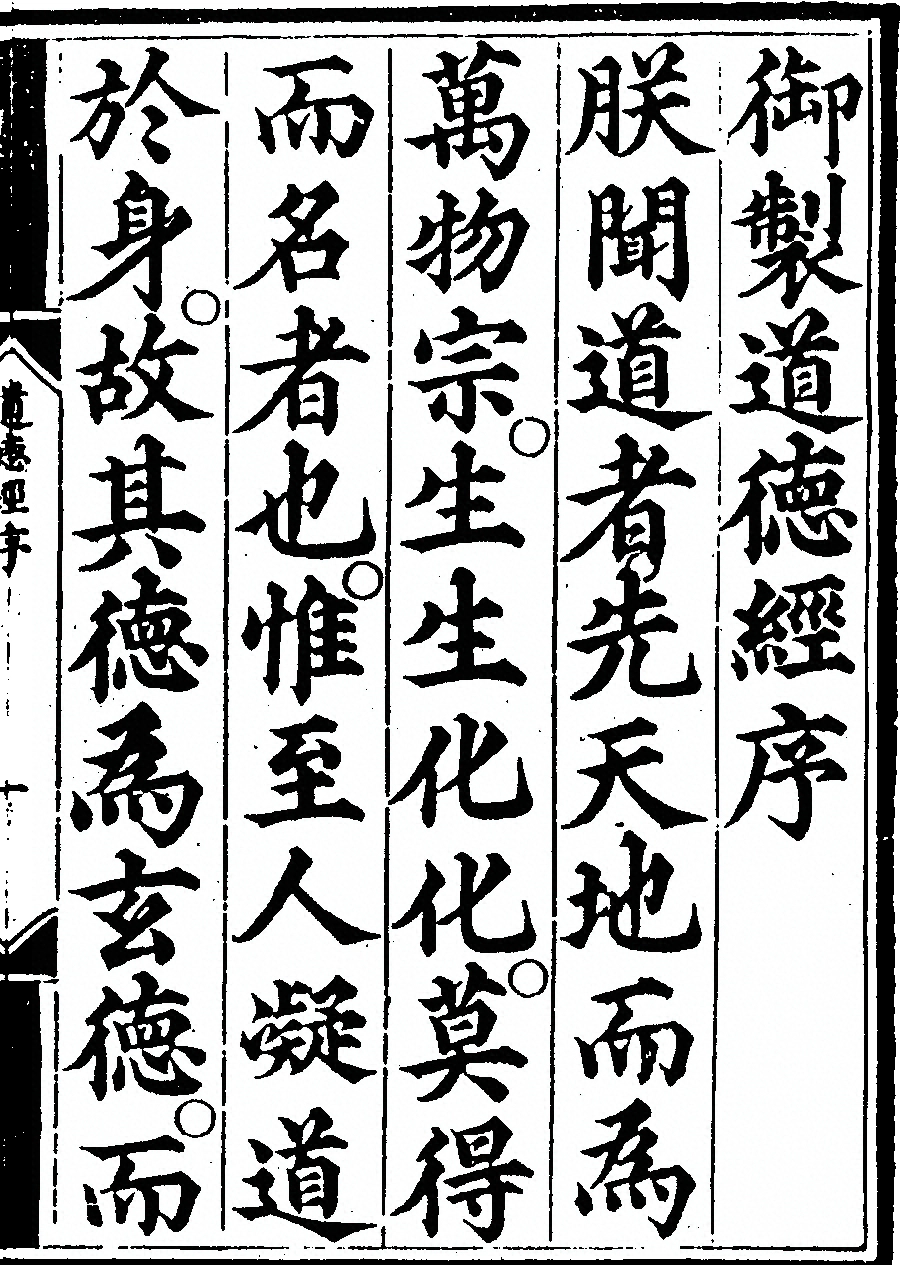 御製道德經序
朕聞道者先天地而為
萬物宗○生生化化○莫得
而名者也○惟至人凝道
於身○故其德為玄德○而
道德經序
十